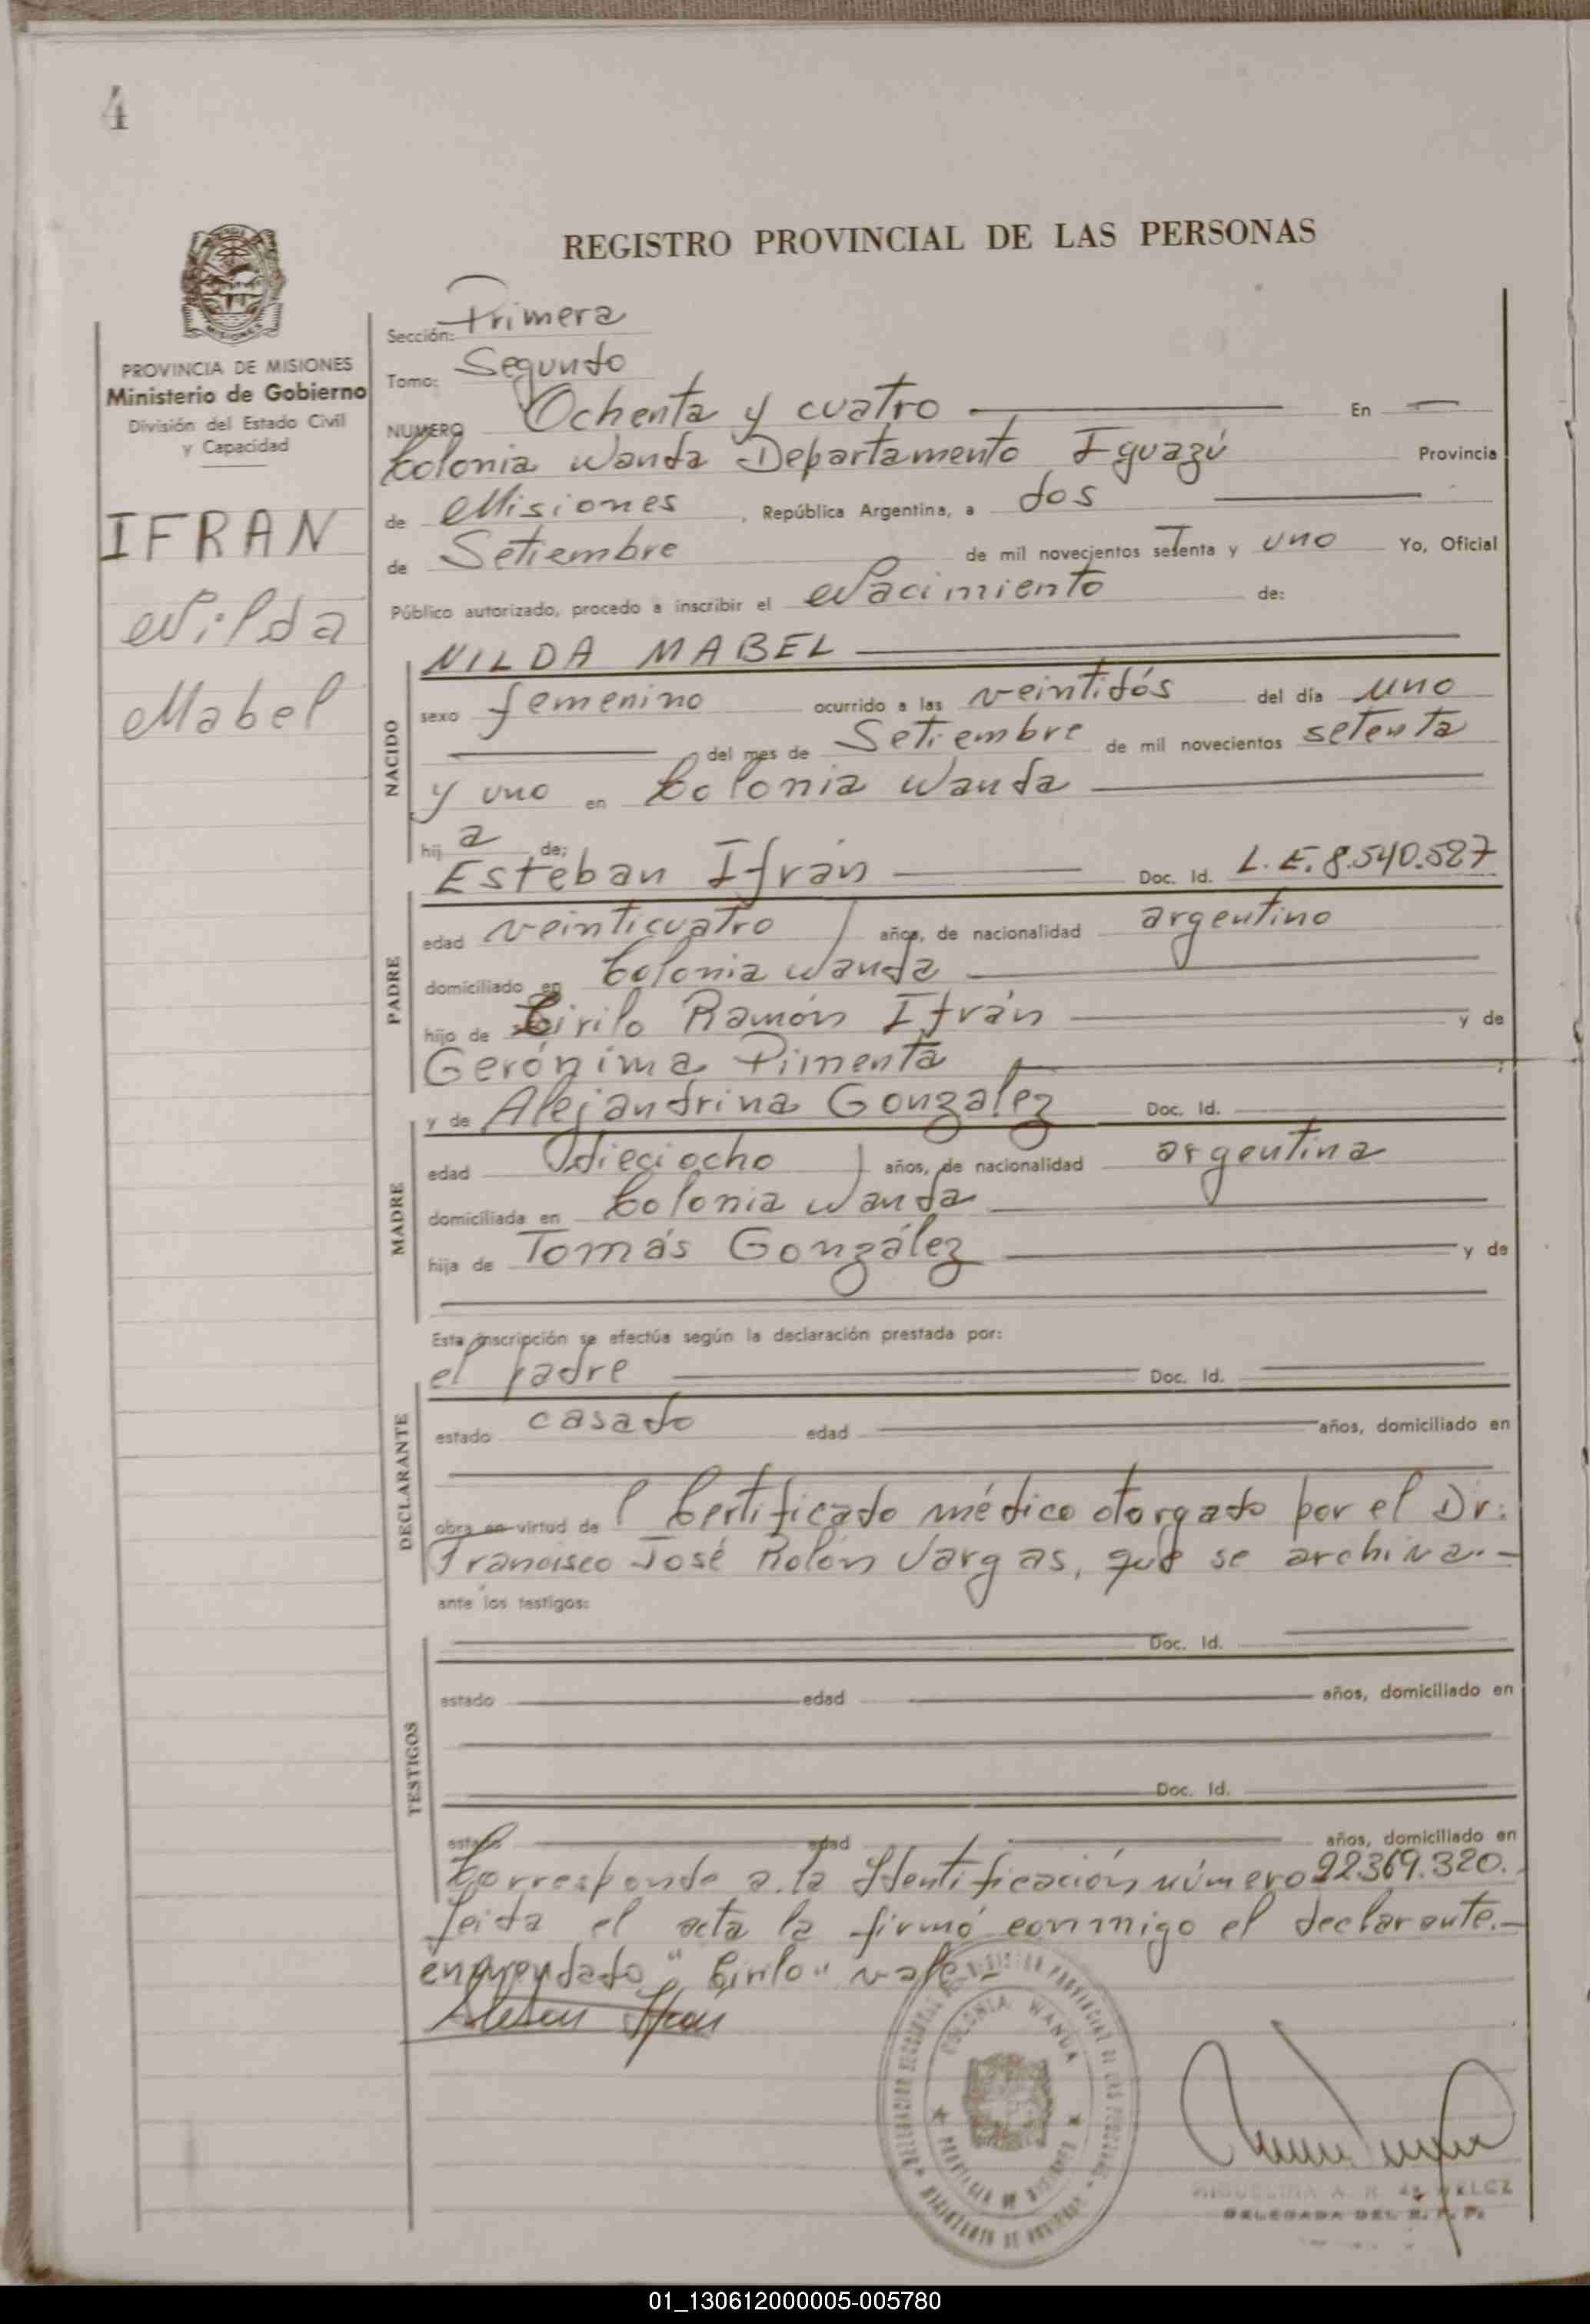 4
REGISTRO PROVINCIAL DE LAS PERSONAS
PROVINCIA DE MISIONES
Ministerio de Gobierno
División del Estado Civil
y Capacidad
IFRAN
Nilda
Mabel
Sección: Primera
Tomo: Segundo
NUMERO Ochenta y cuatro En
Colonia Wanda Departamento Iguazú Provincia
de Misiones, República Argentina, a dos
de Setiembre de mil novecientos setenta y uno Yo, Oficial
Público autorizado, procedo a inscribir el Nacimiento de:
NACIDO
NILDA MABEL
sexo femenino ocurrido a las veintidós del día uno
del mes de Setiembre de mil novecientos setenta
y uno en Colonia Wanda
hij a de:
PADRE
Esteban Ifrán Doc. Id. L.E. 8.540.587
edad veinticuatro años, de nacionalidad argentino
domiciliado en Colonia Wanda
hijo de Cirilo Ramón Ifrán y de
Gerónima Pimenta
MADRE
y de Alejandrina Gonzalez Doc. Id.
edad dieciocho años, de nacionalidad argentina
domiciliada en Colonia Wanda
hija de Tomás González y de
Esta inscripción se efectúa según la declaración prestada por:
DECLARANTE
el padre Doc. Id.
estado casado edad años, domiciliado en
obra en virtud de Certificado médico otorgado por el Dr.
Francisco José Rolón Vargas, que se archiva.-
ante los testigos:
TESTIGOS
Doc. Id.
estado edad años, domiciliado en
Doc. Id.
estado edad años, domiciliado en
Corresponde a la Identificación número 22.369.320.
Leída el acta la firmó conmigo el declarante.-
enmendado "Cirilo" vale.-
COLONIA WANDA
PROVINCIA DE MISIONES
DELEGADA DEL R. P. P.
01_130612000005-005780